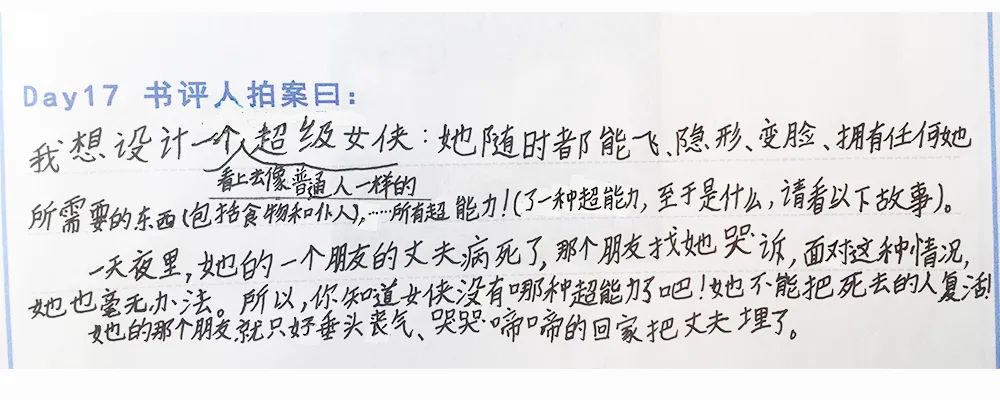 Day17 书评人拍案曰：
我想设计一个超级女侠：她随时都能飞、隐形、变脸、拥有任何她
看上去像普通人一样的
所需要的东西(包括食物和仆人)，……所有超能力！(了一种超能力，至于是什么，请看以下故事)。
一天夜里，她的一个朋友的丈夫病死了，那个朋友找她哭诉，面对这种情况，
她也毫无办法。所以，你知道女侠没有哪种超能力了吧！她不能把死去的人复活！
她的那个朋友就只好垂头丧气、哭哭啼啼的回家把丈夫埋了。